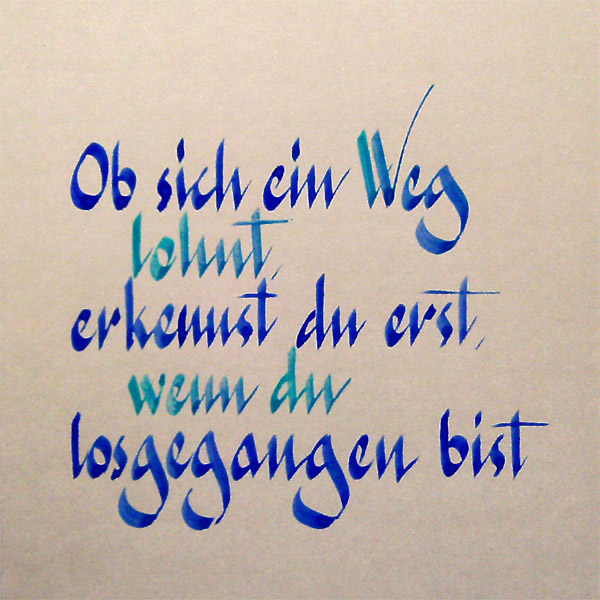 Ob sich ein Weg
lohnt,
erkennst du erst,
wenn du
losgegangen bist